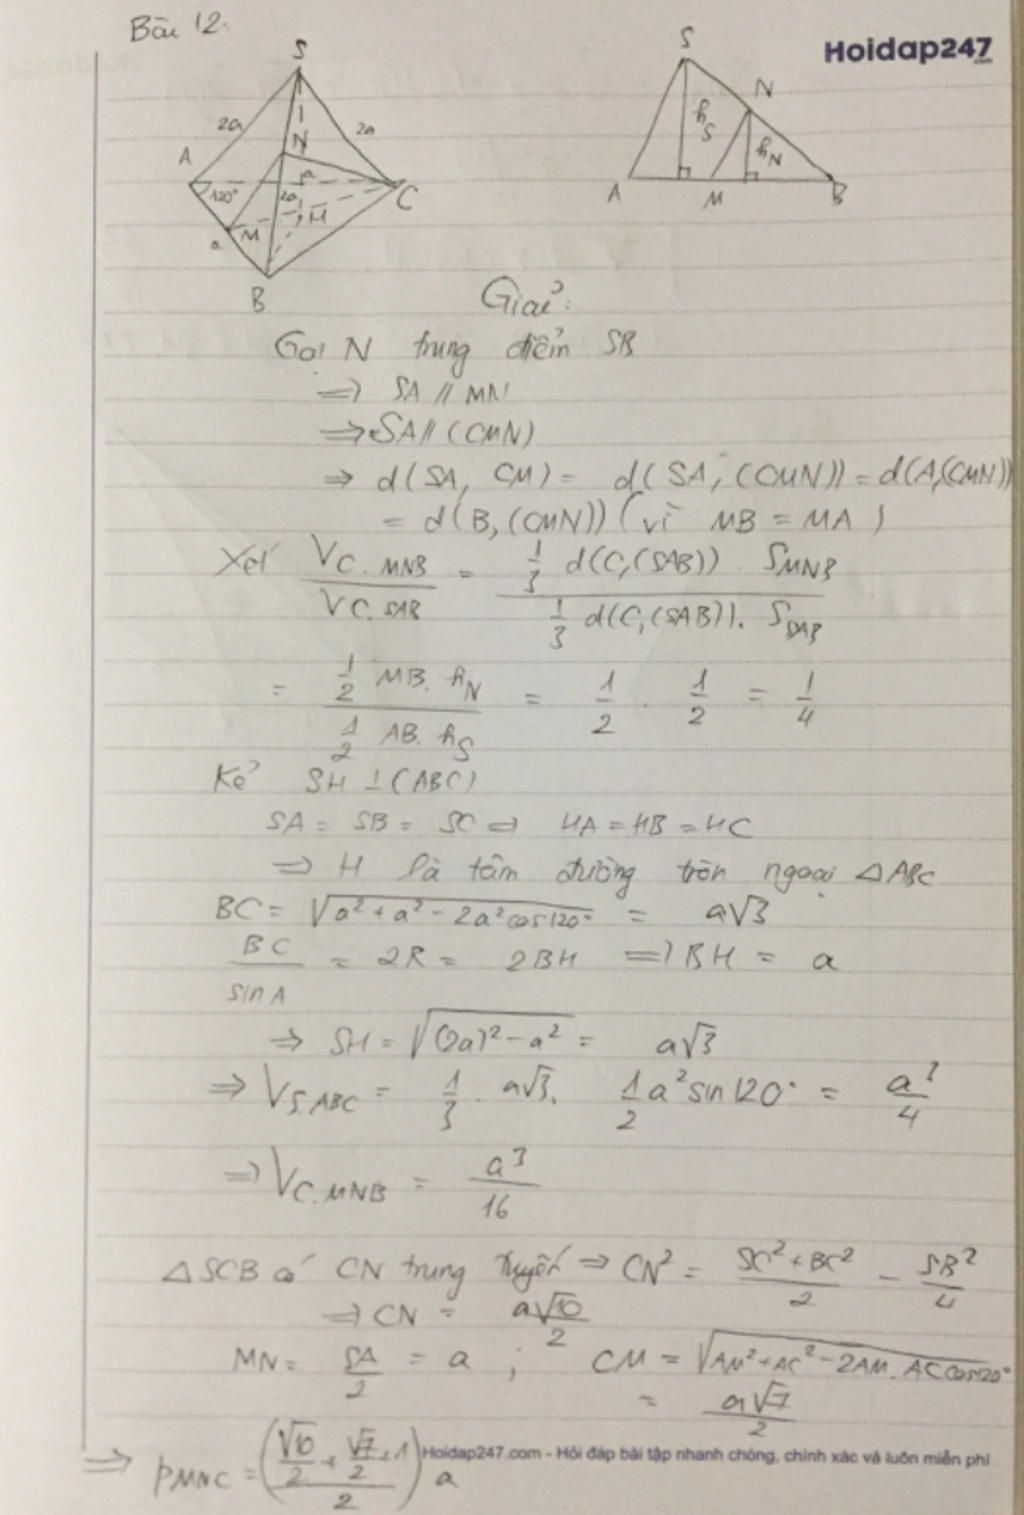 Bài 12.
Hoidap247
S
2a
2a
N
A
a
120°
2a
C
M
H
a
B
S
N
h_S
h_N
A
M
B
Giải:
Gọi N trung điểm SB
=> SA // MN
=> SA // (CMN)
=> d(SA, CM) = d(SA, (CMN)) = d(A,(CMN))
= d(B, (CMN)) (vì MB = MA)
Xét V_C.MNB / V_C.SAB = 1/3 d(C,(SAB)) . S_MNB / 1/3 d(C,(SAB)). S_SAB
= 1/2 MB. h_N / 1/2 AB. h_S = 1/2 . 1/2 = 1/4
Kẻ SH ⊥ (ABC)
SA = SB = SC => HA = HB = HC
=> H là tâm đường tròn ngoại △ABC
BC = √(a² + a² - 2a² cos120°) = a√3
BC / sin A = 2R = 2BH => BH = a
=> SH = √((2a)² - a²) = a√3
=> V_S.ABC = 1/3 . a√3. 1/2 a² sin 120° = a³/4
=> V_C.MNB = a³/16
△SCB có CN trung tuyến => CN² = (SC² + BC²)/2 - SB²/4
=> CN = a√10/2
MN = SA/2 = a ; CM = √(AM² + AC² - 2AM. AC cos120°)
= a√7/2
=> p_MNC = ((√10/2 + √7/2 + 1)/2) a
Hoidap247.com - Hỏi đáp bài tập nhanh chóng, chính xác và luôn miễn phí